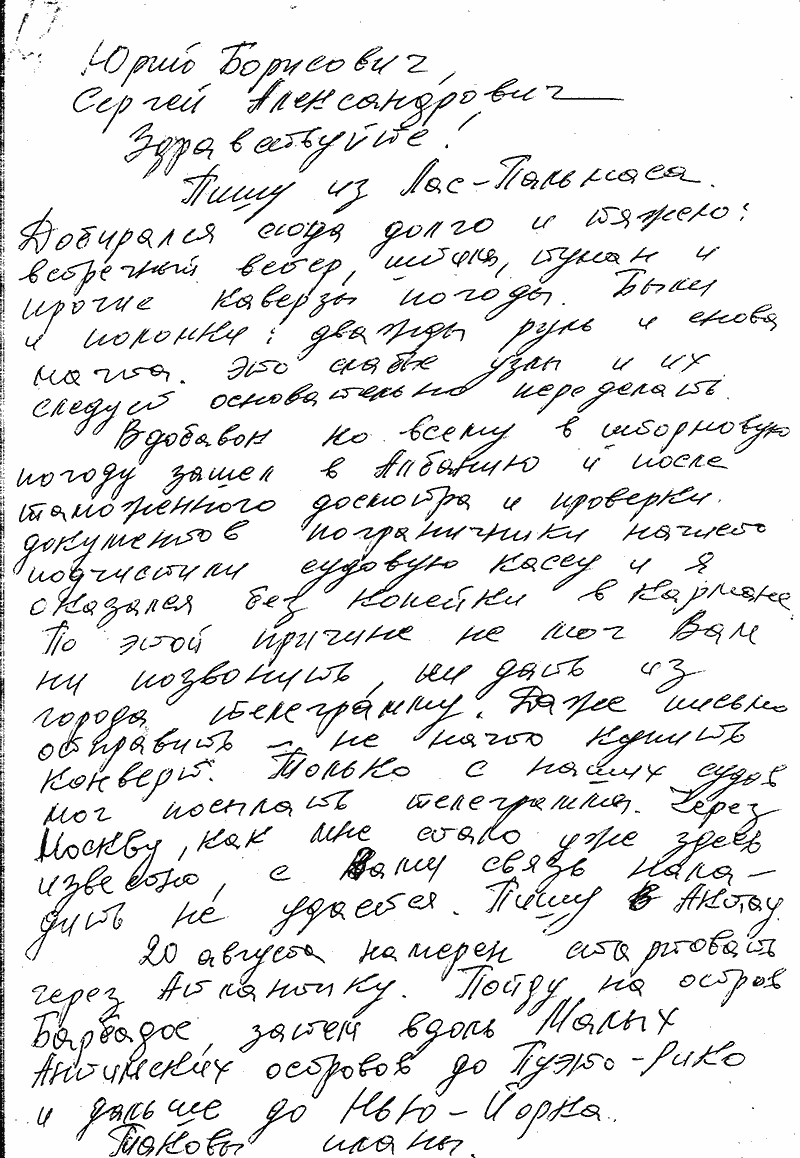 Юрий Борисович,
Сергей Александрович
Здравствуйте!
Пишу из Лас-Пальмаса.
Добирался сюда долго и тяжело:
встречный ветер, штили, туман и
прочие каверзы погоды. Были
и поломки: дважды руль и снова
мачта. Это слабые узлы и их
следует основательно переделать.
Вдобавок ко всему в штормовую
погоду зашел в Албанию и после
таможенного досмотра и проверки
документов пограничники начисто
подчистили судовую кассу и я
оказался без копейки в кармане.
По этой причине не мог Вам
ни позвонить, ни дать из
города телеграмму. Даже письмо
отправить - не начто купить
конверт. Только с наших судов
мог посылать телеграммы. Через
Москву, как мне стало уже здесь
известно, с Вами связь нала-
дить не удается. Пишу в Актау.
20 августа намерен стартовать
через Атлантику. Пойду на остров
Барбадос, затем вдоль Малых
Антильских островов до Пуэто-Рико
и дальше до Нью-Йорка.
Таковы планы.